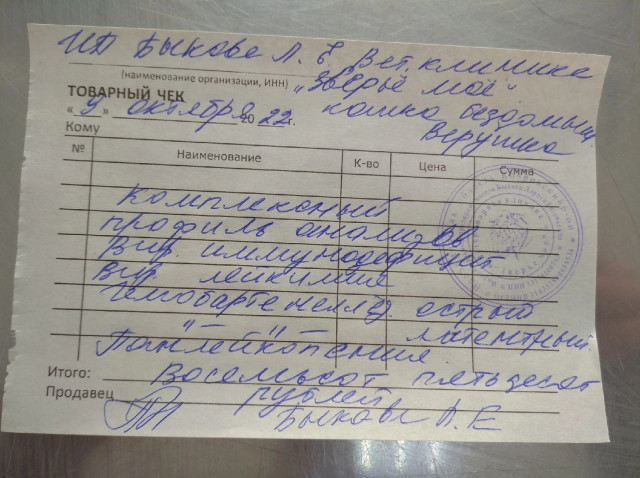 ИП Быкова Л. Е. Вет. клиника
(наименование организации, ИНН) „Зверьё моё“
ТОВАРНЫЙ ЧЕК
кошка бездомыщ.
« 9 » октября 20 22 г.
Верушка
Кому
№ Наименование К-во Цена Сумма
Комплексный
профиль анализов
Вир. иммунодефицит
Вир. лейкимия
Гемобартенеллёз острый
— " — " — латентный
Панлейкопения
Итого: Восемьсот пятьдесят
рублей
Продавец Быкова Л. Е